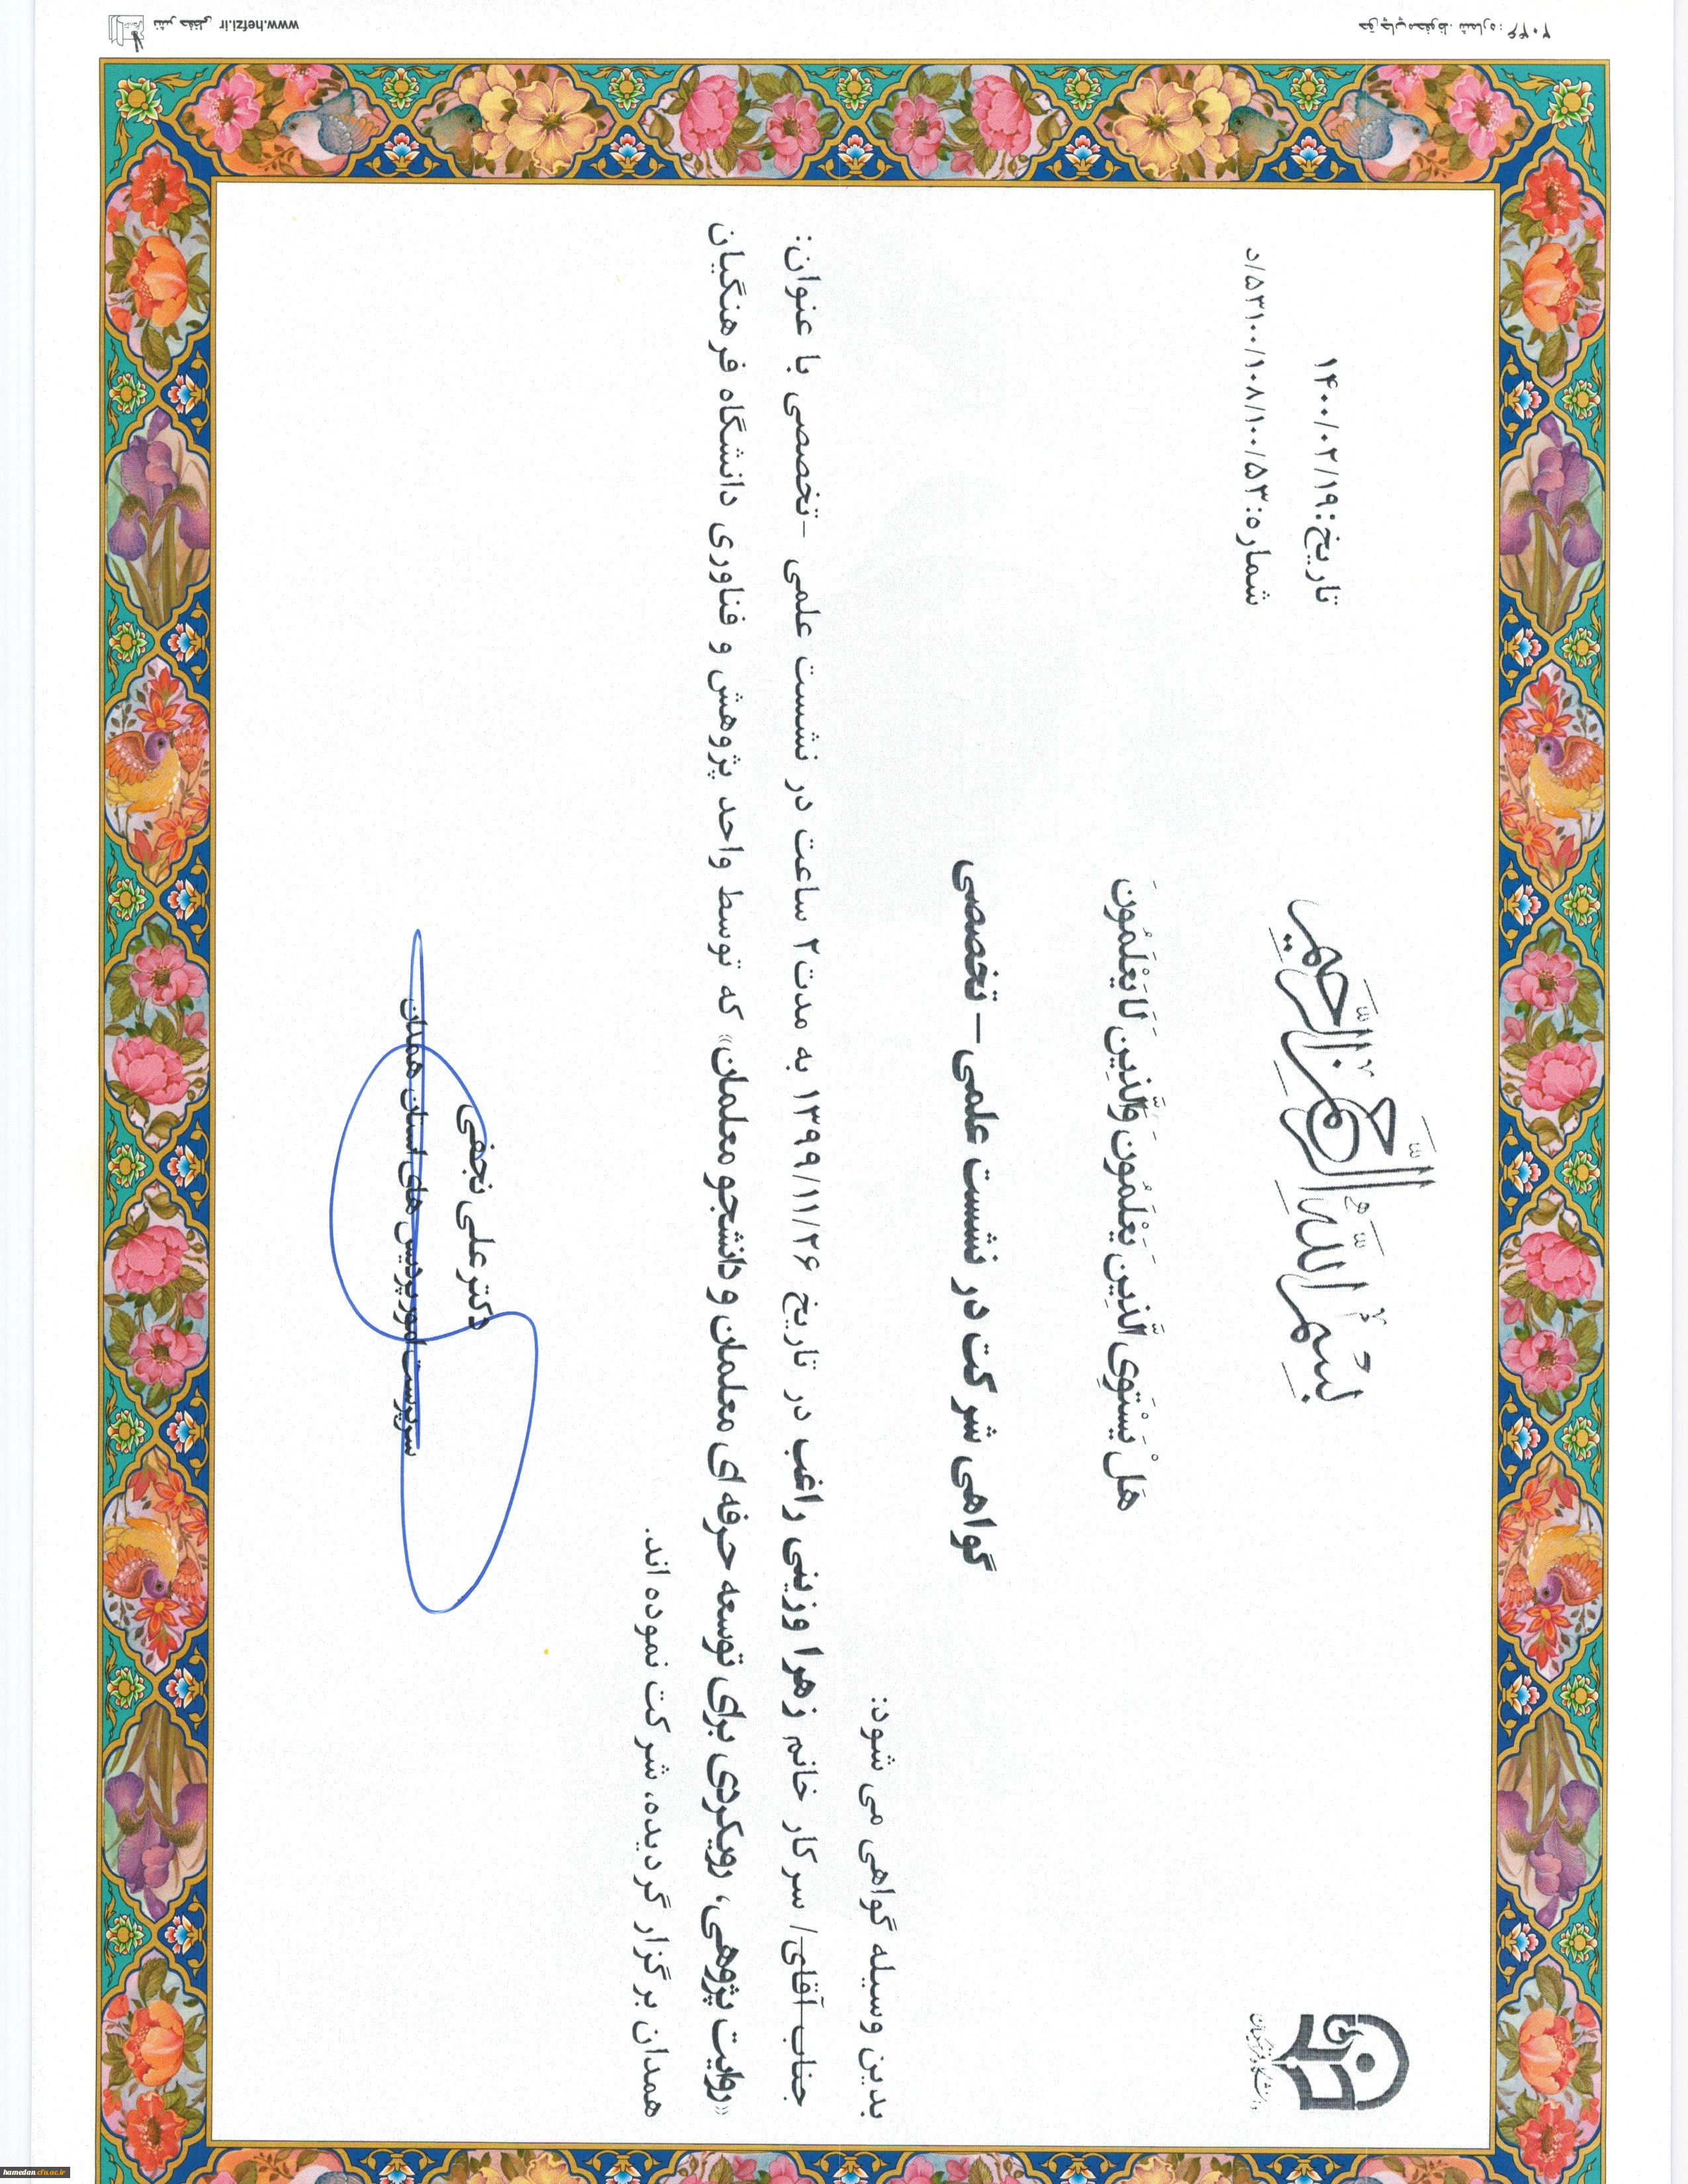 بسم الله الرحمن الرحیم
تاریخ: ۱۴۰۰/۰۲/۱۹
شماره: ۵۳۱۰۰/۱۰۸/۱۰۰/۵۳/د
دانشگاه فرهنگیان
هَلْ یَسْتَوِی الَّذِینَ یَعْلَمُونَ وَالَّذِینَ لَا یَعْلَمُونَ
گواهی شرکت در نشست علمی – تخصصی
بدین وسیله گواهی می شود:
جناب آقای/ سرکار خانم زهرا وزینی راغب در تاریخ ۱۳۹۹/۱۱/۲۶ به مدت ۲ ساعت در نشست علمی -تخصصی با عنوان:
«روایت پژوهی، رویکردی برای توسعه حرفه ای معلمان و دانشجو معلمان» که توسط واحد پژوهش و فناوری دانشگاه فرهنگیان
همدان برگزار گردیده، شرکت نموده اند.
دکتر علی نجفی
سرپرست امور پردیس های استان همدان
نشر حفظی www.hefzi.ir
hamedan.cfu.ac.ir